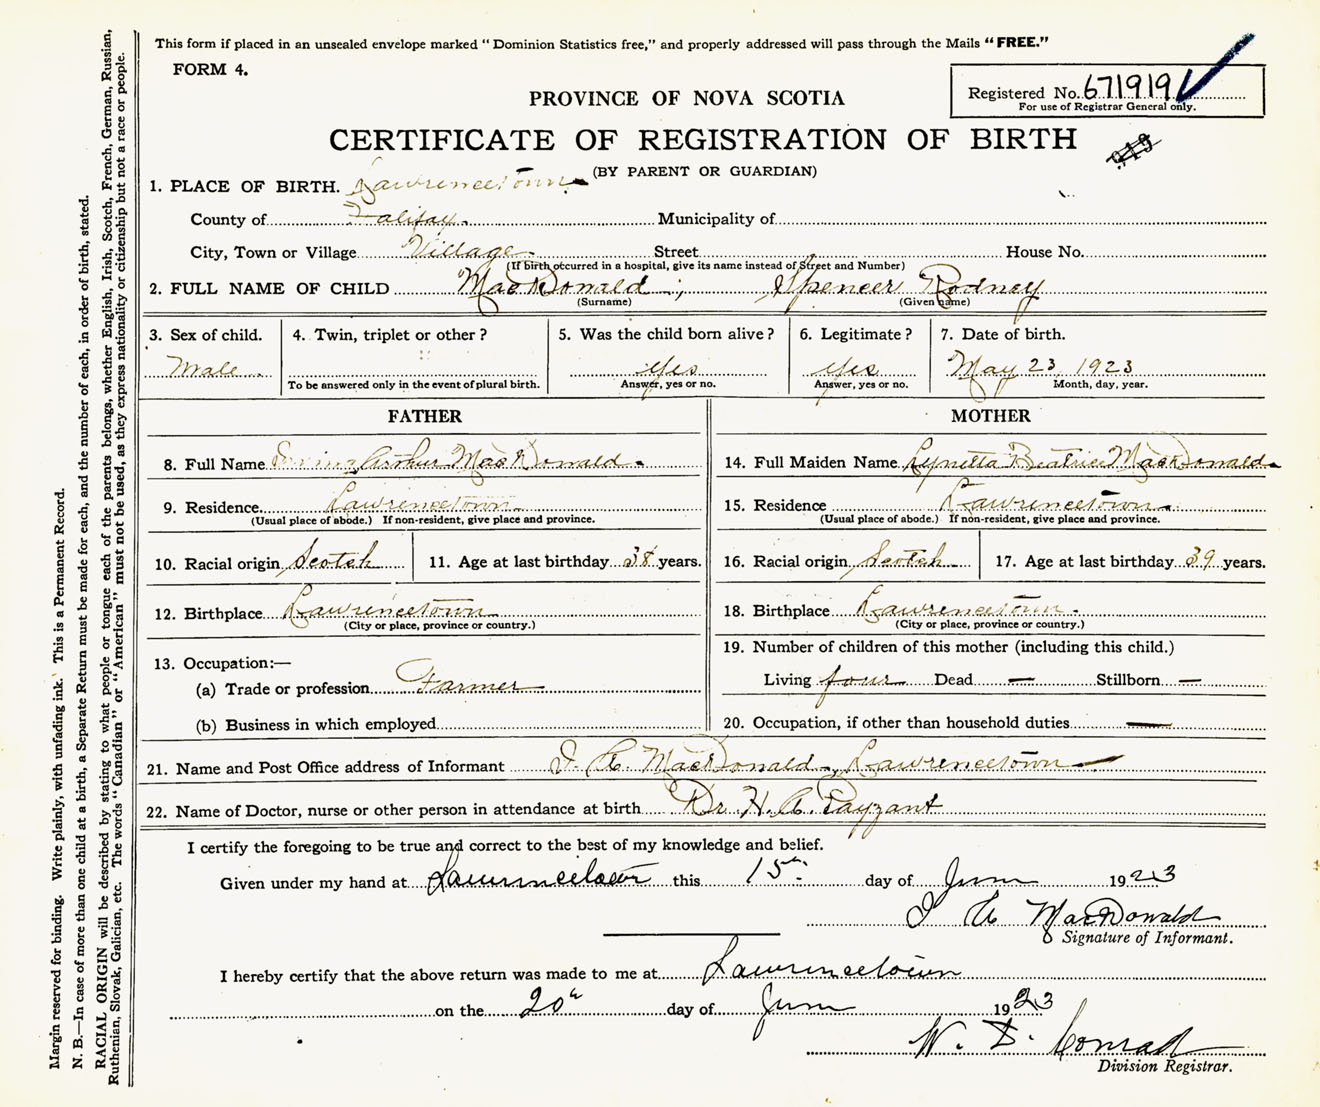 This form if placed in an unsealed envelope marked "Dominion Statistics free," and properly addressed will pass through the Mails "FREE."
FORM 4.
Registered No. 671919
For use of Registrar General only.
PROVINCE OF NOVA SCOTIA
CERTIFICATE OF REGISTRATION OF BIRTH
919
(BY PARENT OR GUARDIAN)
1. PLACE OF BIRTH. Lawrencetown
County of Halifax. Municipality of
City, Town or Village Village. Street House No.
(If birth occurred in a hospital, give its name instead of Street and Number)
2. FULL NAME OF CHILD MacDonald ; Spencer Rodney
(Surname) (Given name)
3. Sex of child. 4. Twin, triplet or other? 5. Was the child born alive? 6. Legitimate? 7. Date of birth.
Male Yes Yes May 23, 1923
To be answered only in the event of plural birth. Answer, yes or no. Answer, yes or no. Month, day, year.
FATHER MOTHER
8. Full Name Irving Arthur MacDonald. 14. Full Maiden Name Lynetta Beatrice MacDonald
9. Residence. Lawrencetown. 15. Residence Lawrencetown.
(Usual place of abode.) If non-resident, give place and province. (Usual place of abode.) If non-resident, give place and province.
10. Racial origin Scotch 11. Age at last birthday 38 years. 16. Racial origin Scotch 17. Age at last birthday 39 years.
12. Birthplace Lawrencetown 18. Birthplace Lawrencetown.
(City or place, province or country.) (City or place, province or country.)
19. Number of children of this mother (including this child.)
13. Occupation:—
(a) Trade or profession Farmer Living four Dead — Stillborn —
(b) Business in which employed 20. Occupation, if other than household duties —
21. Name and Post Office address of Informant I. A. MacDonald, Lawrencetown
22. Name of Doctor, nurse or other person in attendance at birth Dr. H. A. Payzant
I certify the foregoing to be true and correct to the best of my knowledge and belief.
Given under my hand at Lawrencetown this 15th day of June 1923
I A MacDonald
Signature of Informant.
I hereby certify that the above return was made to me at Lawrencetown
on the 20th day of June 1923
W. D. Conrad
Division Registrar.
Margin reserved for binding. Write plainly, with unfading ink. This is a Permanent Record.
N. B.—In case of more than one child at a birth, a Separate Return must be made for each, and the number of each, in order of birth, stated.
RACIAL ORIGIN will be described by stating to what people or tongue each of the parents belongs, whether English, Irish, Scotch, French, German, Russian,
Ruthenian, Slovak, Galician, etc. The words "Canadian" or "American" must not be used, as they express nationality or citizenship but not a race or people.